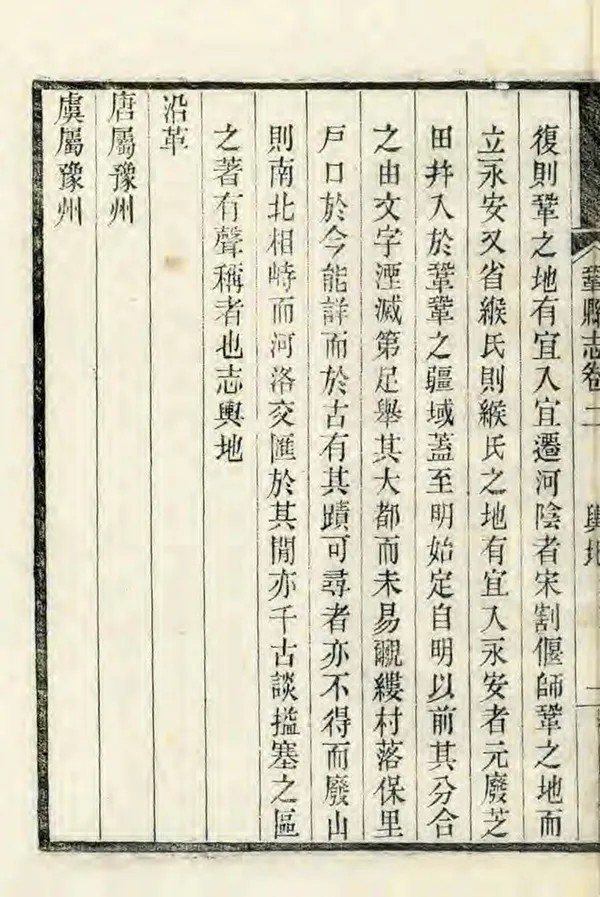 鞏縣志卷二 輿地 一
復則鞏之地有宜入宜遷河陰者宋割偃師鞏之地而
立永安又省緱氏則緱氏之地有宜入永安者元廢芝
田幷入於鞏鞏之疆域蓋至明始定自明以前其分合
之由文字湮滅第足舉其大都而未易覼縷村落保里
戶口於今能詳而於古有其蹟可尋者亦不得而廢山
則南北相峙而河洛交匯於其閒亦千古談搤塞之區
之著有聲稱者也志輿地
沿革
唐屬豫州
虞屬豫州